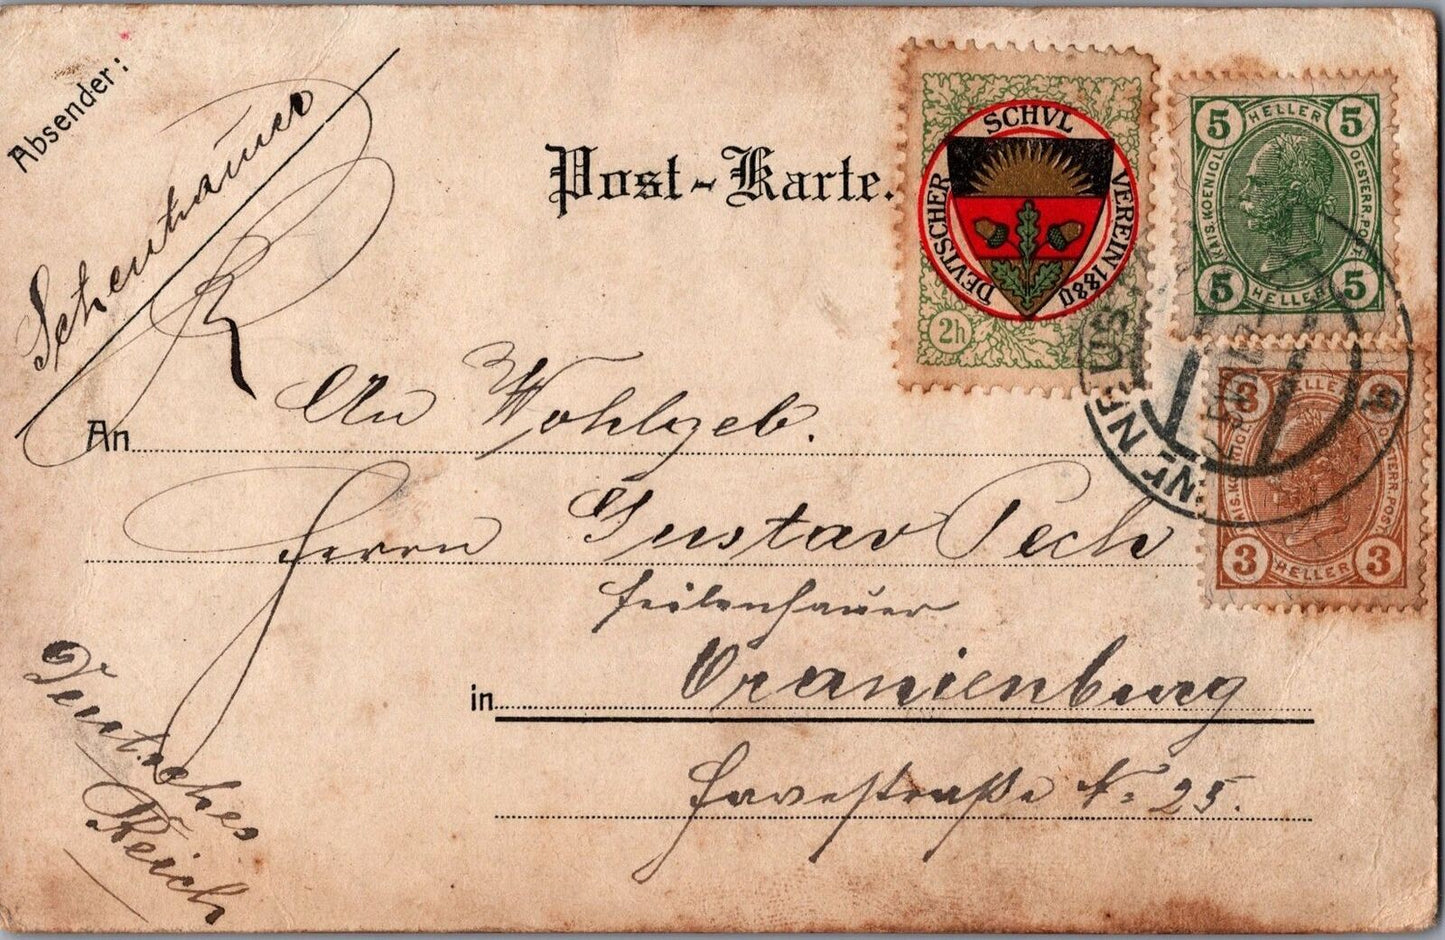 Absender:
Schenhauer
Post-Karte.
DEVTSCHER SCHVL VEREIN 1880
2h
5 HELLER 5
KAIS. KOENIGL. OESTERR. POST
5 HELLER 5
3 HELLER 3
KAIS. KÖNIGL. ÖSTERR. POST
3 HELLER 3
An Wohlgeb.
Herrn Gustav Pech
Feilenhauer
in Oranienburg
Havelstraße № 25.
Deutsches
Reich